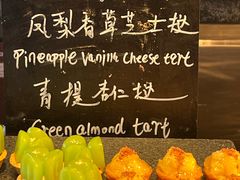 凤梨香草芝士挞
Pineapple vanilla cheese tert
青提杏仁挞
Green almond tart